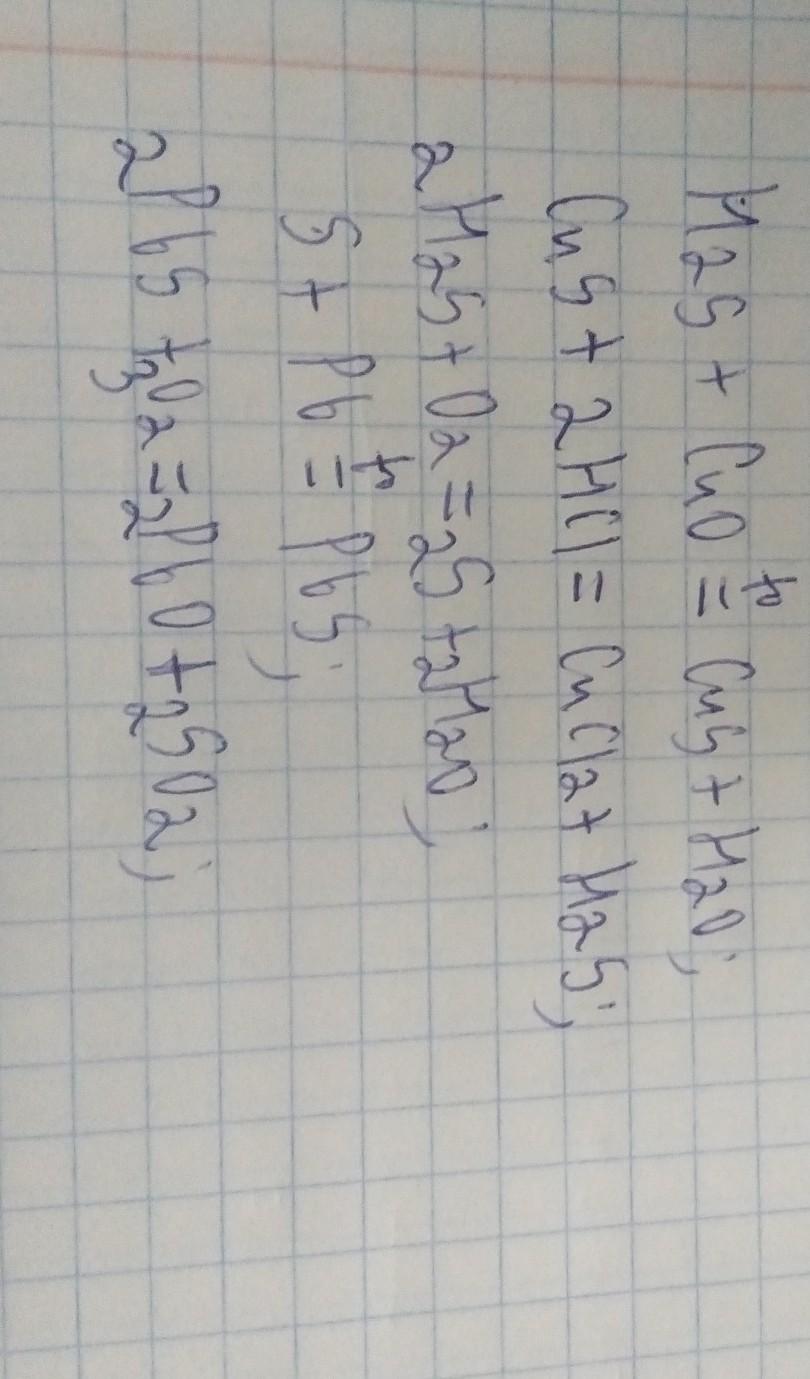 H2S + CuO =t° CuS + H2O;
CuS + 2HCl = CuCl2 + H2S;
2H2S + O2 = 2S + 2H2O;
S + Pb =t° PbS;
2PbS + 3O2 = 2PbO + 2SO2;